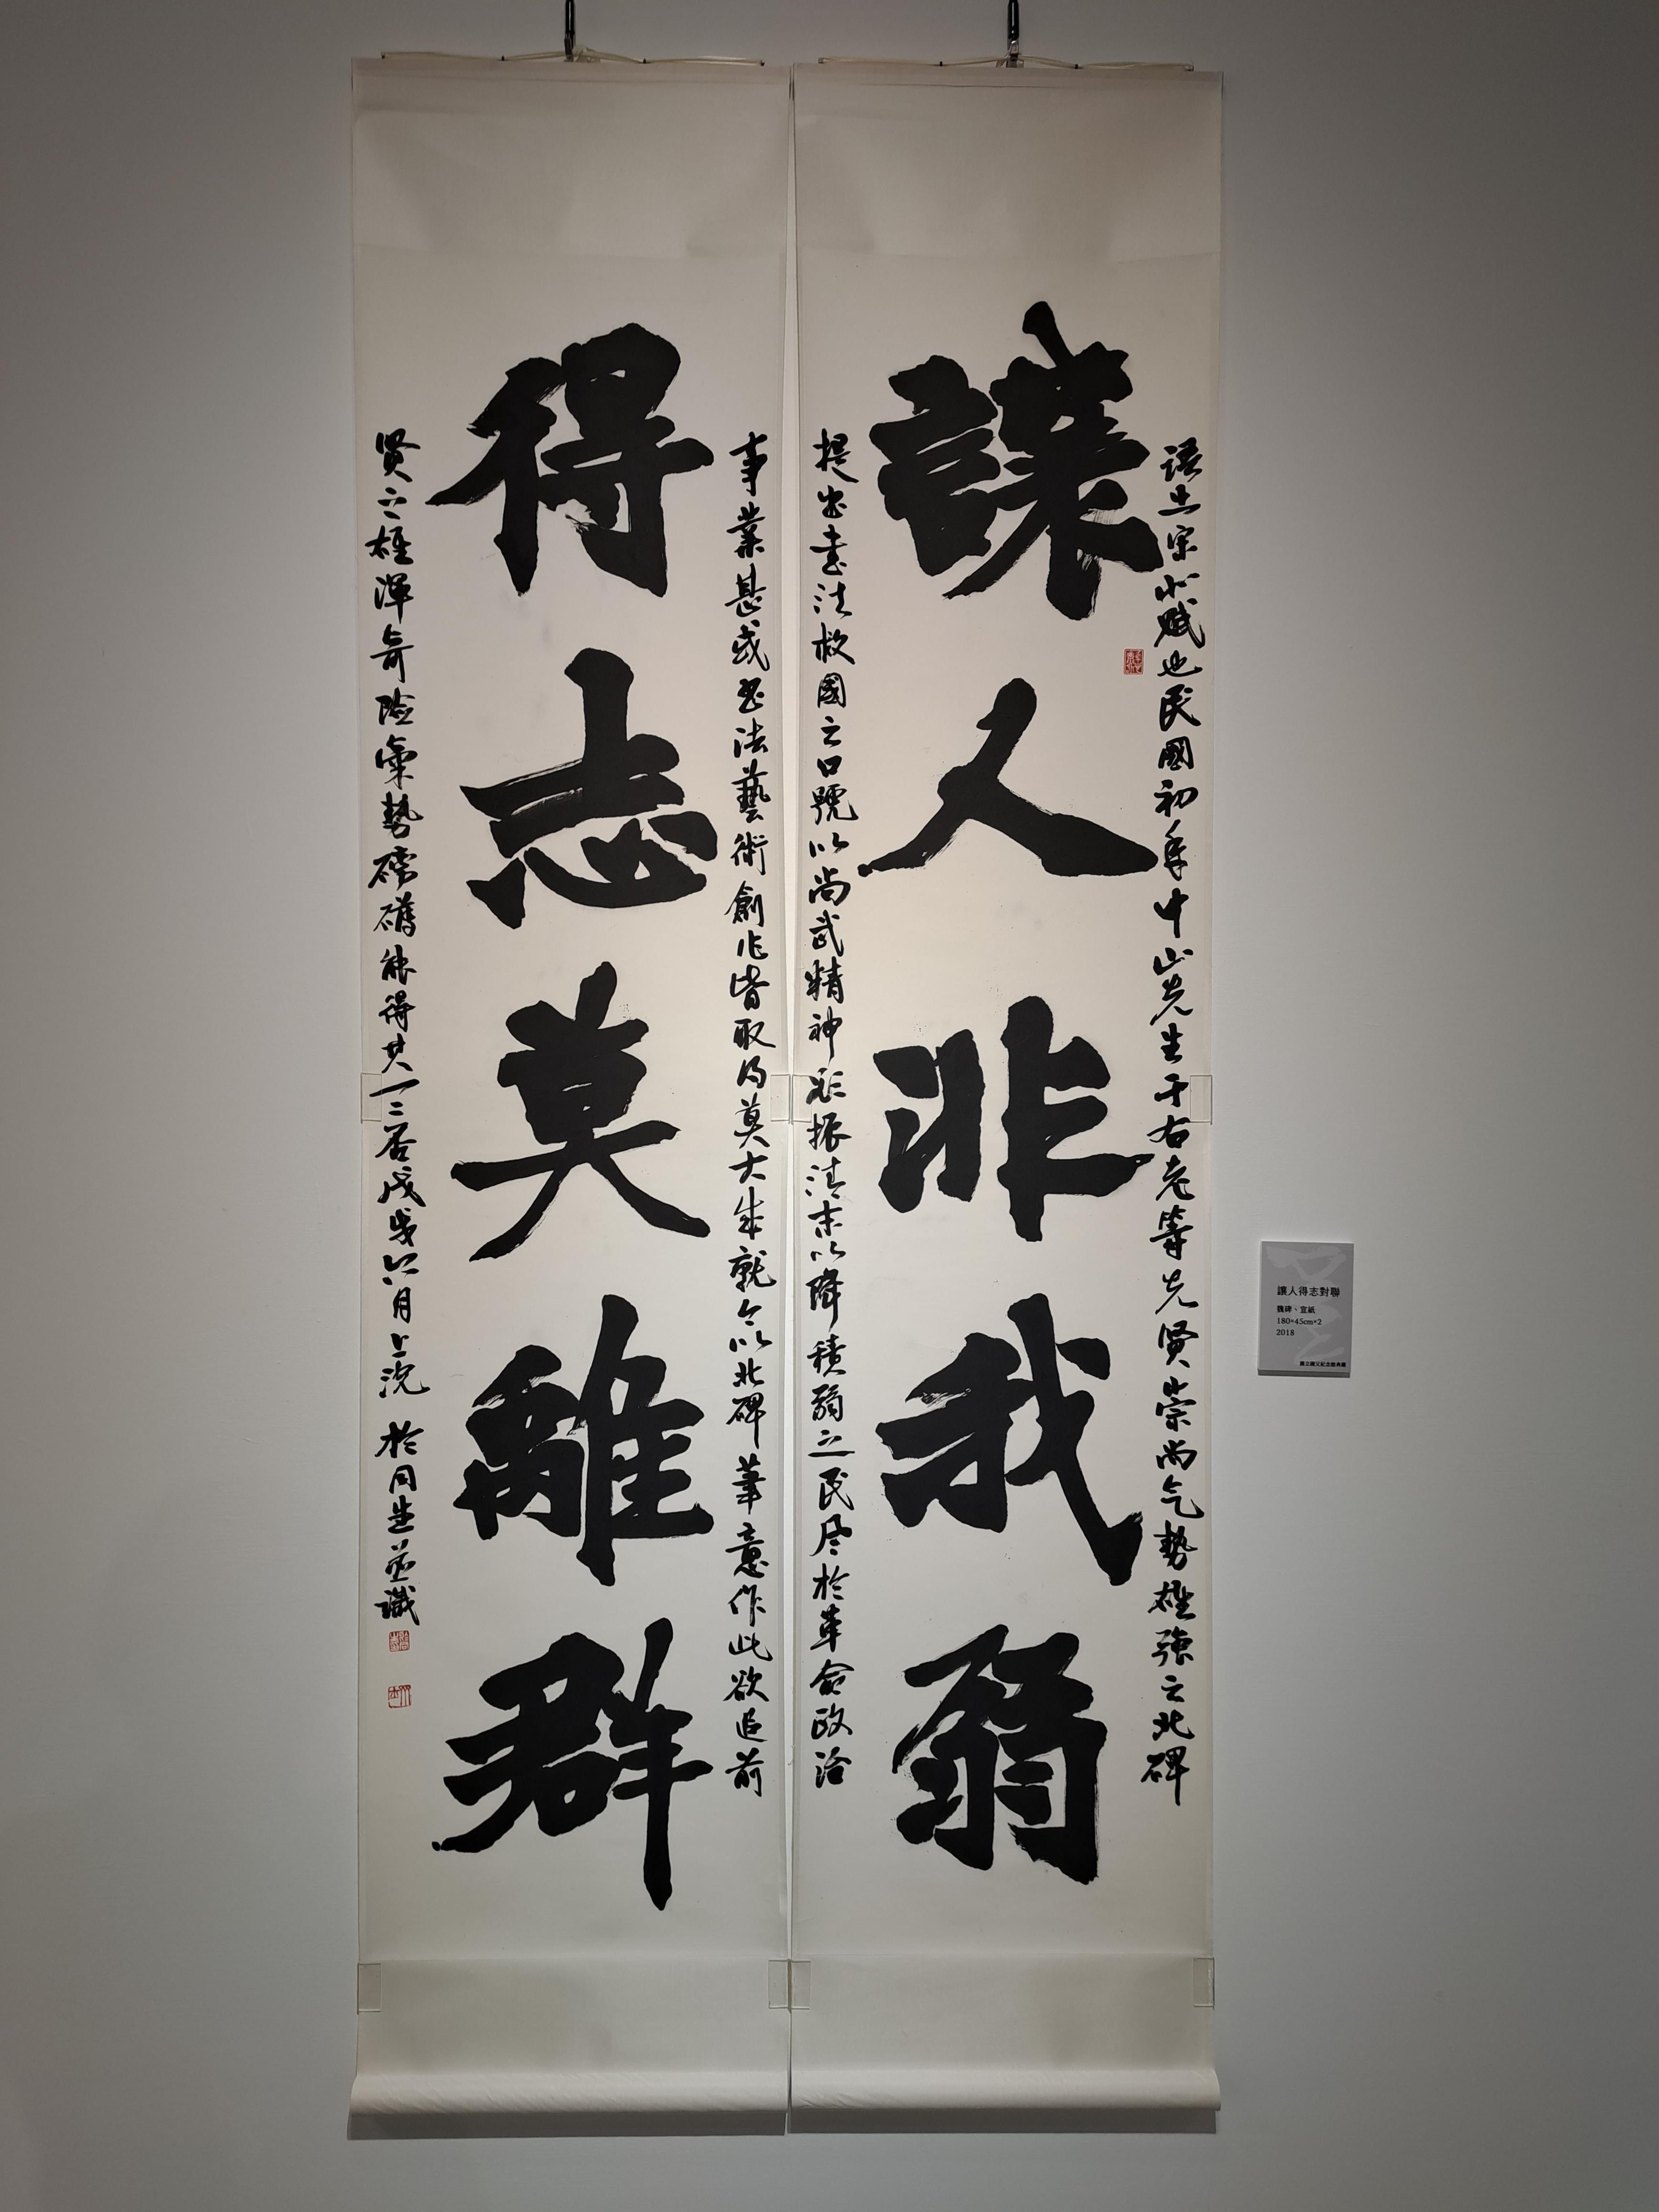 讓人非我弱
得志莫離群
語出宋小賦也民國初年中山先生于右老等先賢崇尚气勢雄強之北碑
提出書法救國之口號以尚武精神振清末以降積弱之民風於革命政治
事業甚或書法藝術創作皆取得莫大成就今以北碑筆意作此欲追前
賢之雄渾奇險氣勢磅礴能得其一二否戊戌六月上浣 於同生並識
讓人得志對聯
魏碑、宣紙
180×45cm×2
2018
國立國父紀念館典藏